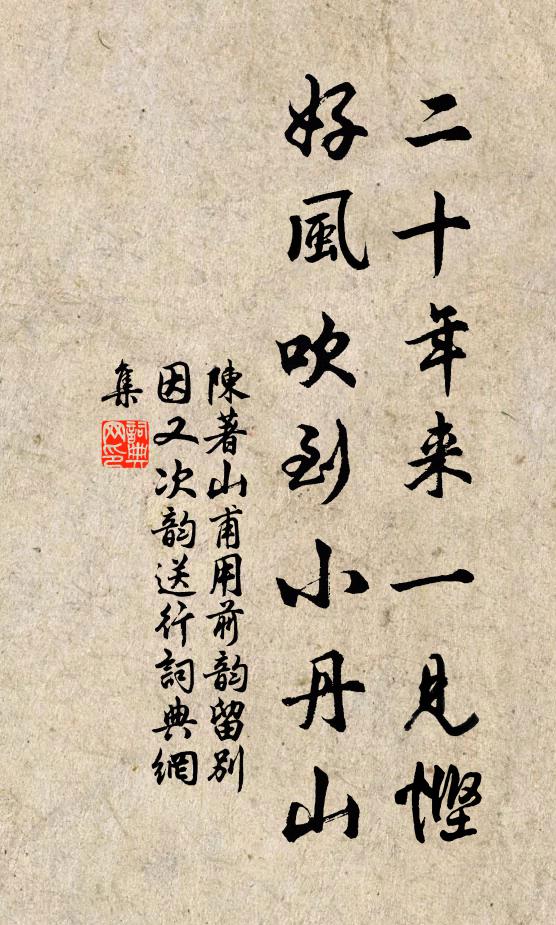 二十年来一見慳
好風吹到小丹山
陳著山甫用前韵留别
因又次韵送行詞典網
集
詞典网印